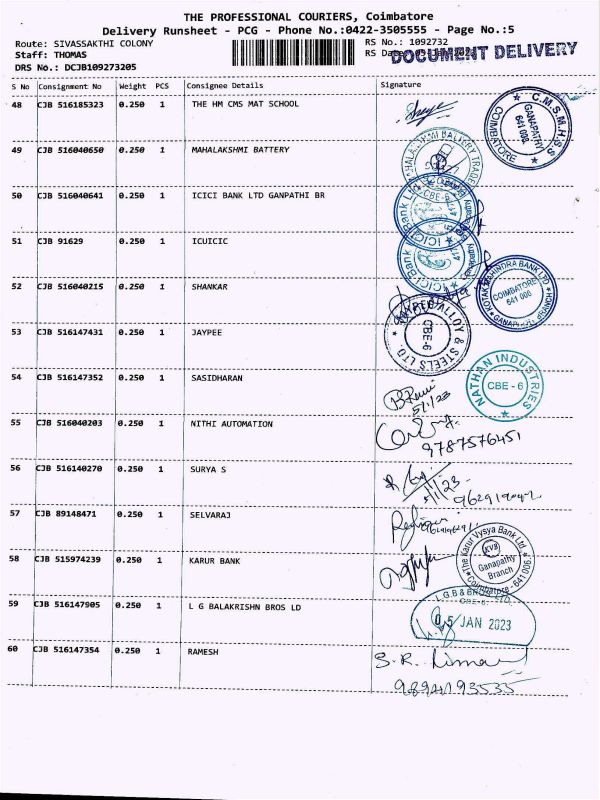 THE PROFESSIONAL COURIERS, Coimbatore
Delivery Runsheet - PCG - Phone No.:0422-3505555 - Page No.:5
Route: SIVASSAKTHI COLONY
Staff: THOMAS
DRS No.: DCJB109273205
RS No.: 1092732
RS Date:
DOCUMENT DELIVERY
S No Consignment No Weight PCS Consignee Details Signature
48 CJB 516185323 0.250 1 THE HM CMS MAT SCHOOL
C.M.S.M.H.S.S
GANAPATHY
641 006.
COIMBATORE
49 CJB 516040650 0.250 1 MAHALAKSHMI BATTERY
50 CJB 516040641 0.250 1 ICICI BANK LTD GANPATHI BR
ICICI Bank Ltd
CBE-6
51 CJB 91629 0.250 1 ICUICIC
ICICI Bank
52 CJB 516040215 0.250 1 SHANKAR
KOTAK MAHINDRA BANK LTD
COIMBATORE
641 006
53 CJB 516147431 0.250 1 JAYPEE
JAYPEE ALLOY & STEELS LTD
CBE-6
54 CJB 516147352 0.250 1 SASIDHARAN
NATHAN INDUSTRIES
CBE - 6
5/1/23
55 CJB 516040203 0.250 1 NITHI AUTOMATION
9787576451
56 CJB 516140270 0.250 1 SURYA S
57 CJB 89148471 0.250 1 SELVARAJ
58 CJB 515974239 0.250 1 KARUR BANK
The Karur Vysya Bank Ltd.
KVB
Ganapathy
Branch
Coimbatore - 641 006
59 CJB 516147905 0.250 1 L G BALAKRISHN BROS LD
L.G.B & BROS LTD
CBE-6
05 JAN 2023
60 CJB 516147354 0.250 1 RAMESH